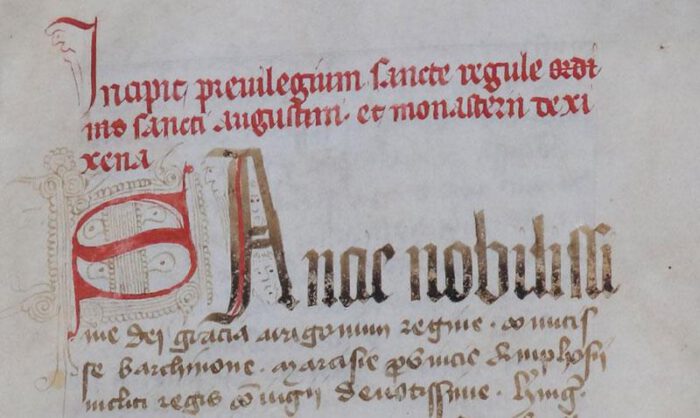 Incipit previlegium sancte regule ordi
nis sancti augustini. et monasterii de xi
xena
Sanac nobilissi
me dei gracia aragonum regine. comitis
se barchinone. marcisie
inclici regis devotissime.